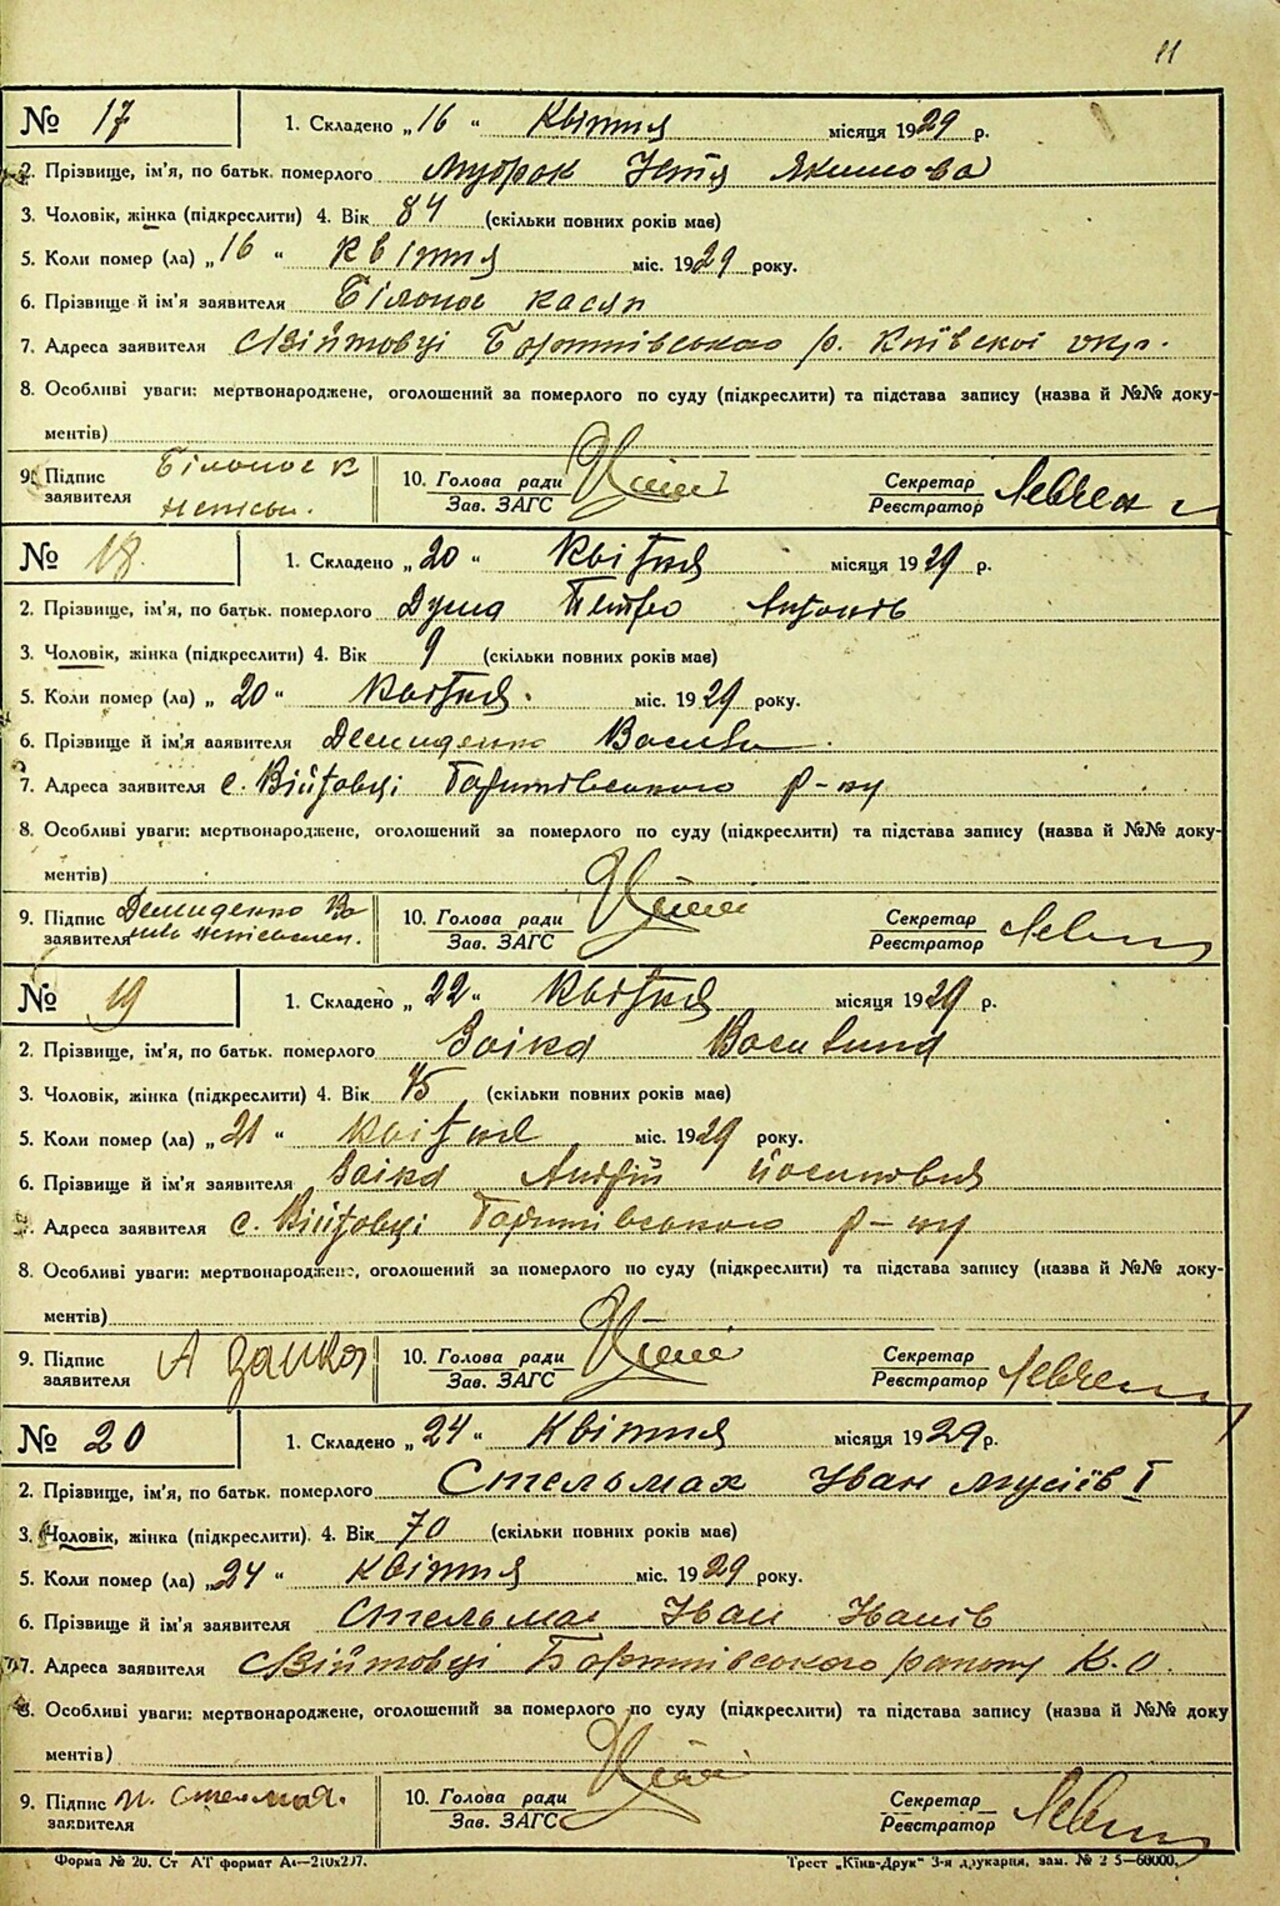 11
№ 17 1. Складено „16“ Квітня місяця 1929 р.
2. Прізвище, ім'я, по батьк. померлого Якимова
3. Чоловік, жінка (підкреслити) 4. Вік 84 (скільки повних років має)
5. Коли помер (ла) „16“ Квітня міс. 1929 року.
6. Прізвище й ім'я заявителя Білоног Касян
7. Адреса заявителя с Війтовці Бортнівського р. Київскої окр.
8. Особливі уваги: мертвонароджене, оголошений за померлого по суду (підкреслити) та підстава запису (назва й №№ доку-
ментів)
9. Підпис заявителя Білоног К неписьм. 10. Голова ради Зав. ЗАГС Секретар Реєстратор Левчен
№ 18. 1. Складено „20“ Квітня місяця 1929 р.
2. Прізвище, ім'я, по батьк. померлого Дума Петро Антонів
3. Чоловік, жінка (підкреслити) 4. Вік 9 (скільки повних років має)
5. Коли помер (ла) „20“ Квітня. міс. 1929 року.
6. Прізвище й ім'я заявителя Демиденко Василь.
7. Адреса заявителя с. Війтовці Бортнівського р-ну
8. Особливі уваги: мертвонароджене, оголошений за померлого по суду (підкреслити) та підстава запису (назва й №№ доку-
ментів)
9. Підпис заявителя Демиденко Ва силь неписьмен. 10. Голова ради Зав. ЗАГС Секретар Реєстратор Левчен
№ 19 1. Складено „22“ Квітня місяця 1929 р.
2. Прізвище, ім'я, по батьк. померлого Заіка Василина
3. Чоловік, жінка (підкреслити) 4. Вік 45 (скільки повних років має)
5. Коли помер (ла) „21“ Квітня міс. 1929 року.
6. Прізвище й ім'я заявителя Заіка Андрій Йосипович
7. Адреса заявителя с. Війтовці Бортнівського р-ну
8. Особливі уваги: мертвонароджене, оголошений за померлого по суду (підкреслити) та підстава запису (назва й №№ доку-
ментів)
9. Підпис заявителя А Заика 10. Голова ради Зав. ЗАГС Секретар Реєстратор Левчен
№ 20 1. Складено „24“ Квітня місяця 1929 р.
2. Прізвище, ім'я, по батьк. померлого Стельмах Іван Мусіїв I
3. Чоловік, жінка (підкреслити). 4. Вік 70 (скільки повних років має)
5. Коли помер (ла) „24“ Квітня міс. 1929 року.
6. Прізвище й ім'я заявителя Стельмах Іван Іванів
7. Адреса заявителя с Війтовці Бортнівського району К.О.
8. Особливі уваги: мертвонароджене, оголошений за померлого по суду (підкреслити) та підстава запису (назва й №№ доку
ментів)
9. Підпис заявителя И. Стелмах. 10. Голова ради Зав. ЗАГС Секретар Реєстратор Левчен
Форма № 20. Ст АТ формат А4—210х297. Трест „Київ-Друк“ 3-я друкарня, зам. № 2 5—60000.